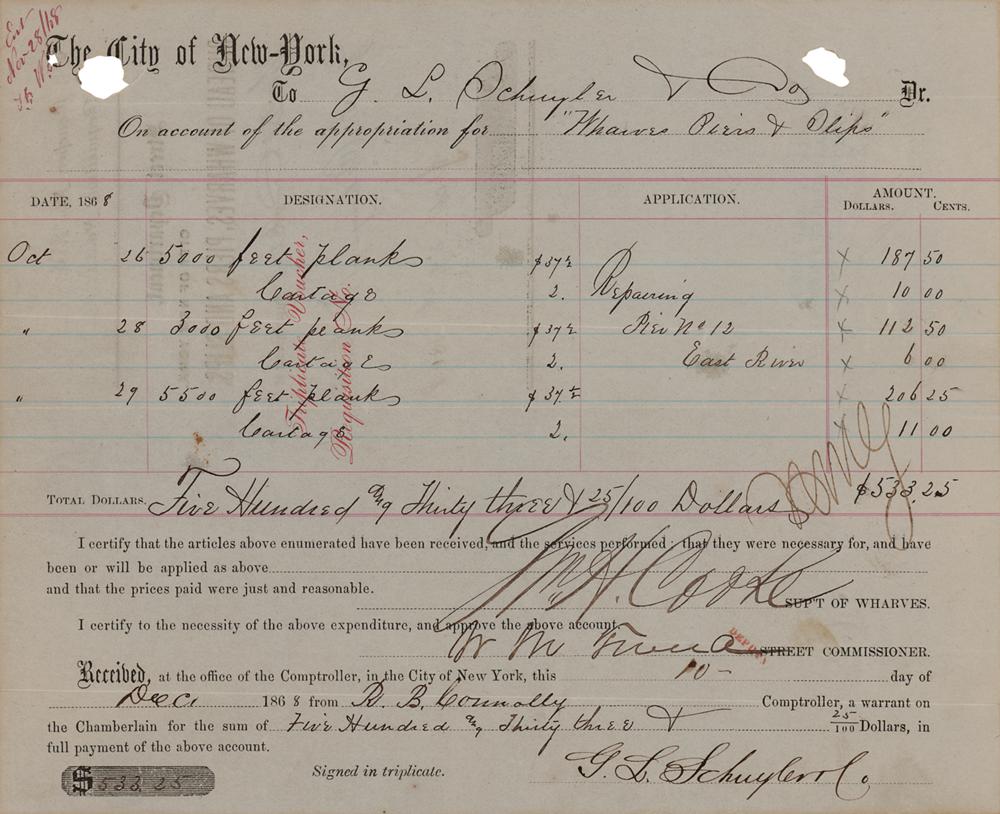 Ent
Nov 28/68
The City of New-York,
To G. L. Schuyler & Co Dr.
On account of the appropriation for "Wharves Piers & Slips"
DATE, 1868 DESIGNATION. APPLICATION. AMOUNT.
DOLLARS. CENTS.
Oct 26 5000 feet planks $37½ X 187 50
Cartage 2. Repairing X 10 00
" 28 3000 feet planks $37½ Pier No 12 X 112 50
Cartage 2. East River X 6 00
" 29 5500 feet planks $37½ X 206 25
Cartage 2. X 11 00
Triplicate Voucher,
Requisition No.
TOTAL DOLLARS. Five Hundred and Thirty three & 25/100 Dollars $533,25
I certify that the articles above enumerated have been received, and the services performed; that they were necessary for, and have
been or will be applied as above
and that the prices paid were just and reasonable.
Wm. H. Cooke SUP'T OF WHARVES.
I certify to the necessity of the above expenditure, and approve the above account.
DEPUTY STREET COMMISSIONER.
Received, at the office of the Comptroller, in the City of New York, this 10 - day of
Dec. 1868 from R. B. Connolly Comptroller, a warrant on
the Chamberlain for the sum of Five Hundred and Thirty three & 25/100 Dollars, in
full payment of the above account.
$ 533,25
Signed in triplicate.
G. L. Schuyler & Co.